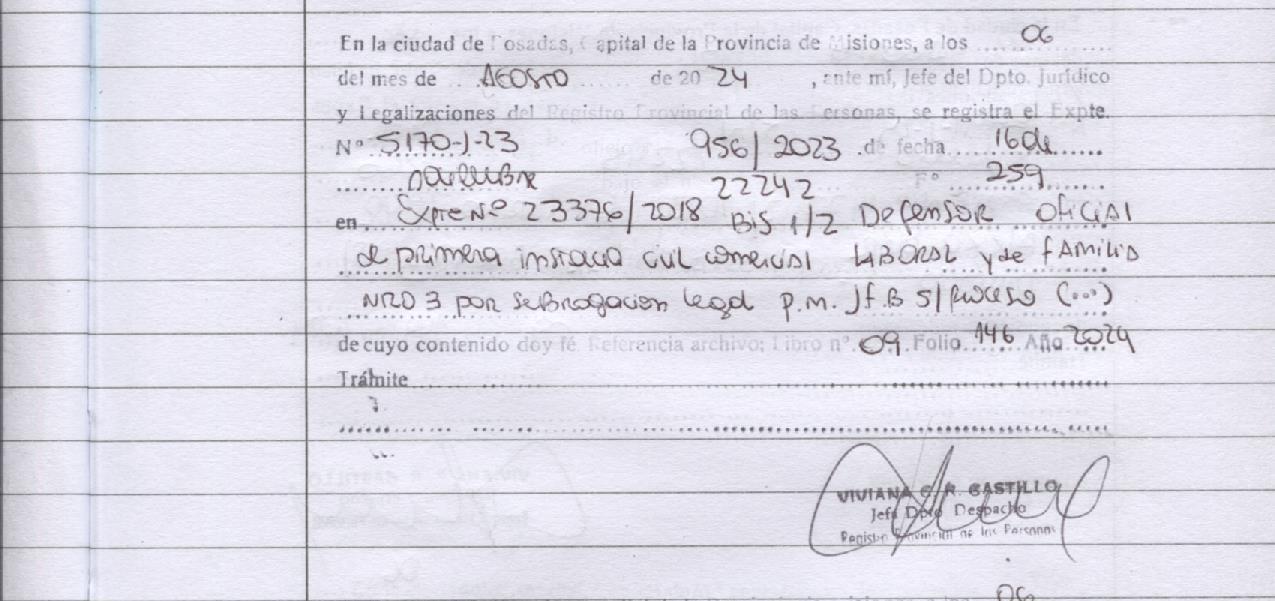 En la ciudad de Posadas, Capital de la Provincia de Misiones, a los ...... 06 ......
del mes de ... AGOSTO ...... de 20 24 , ante mí, Jefe del Dpto. Jurídico
y Legalizaciones del Registro Provincial de las Personas, se registra el Expte.
Nº 5170-J-23 956/2023 de fecha 16 de
22242 Fº 259
en Expte Nº 23376/2018 Bis 1/2 Defensor Oficial
de primera civil comercial LABORAL y de fAmiliA
NRO 3 por Subrogacion legal p.m. J.f.B S/ (...)
de cuyo contenido doy fé. Referencia archivo: Libro nº 09 Folio 146 Año 2024
Trámite
VIVIANA G. R. CASTILLO
Jefa Dpto Despacho
Registro Provincial de las Personas
06